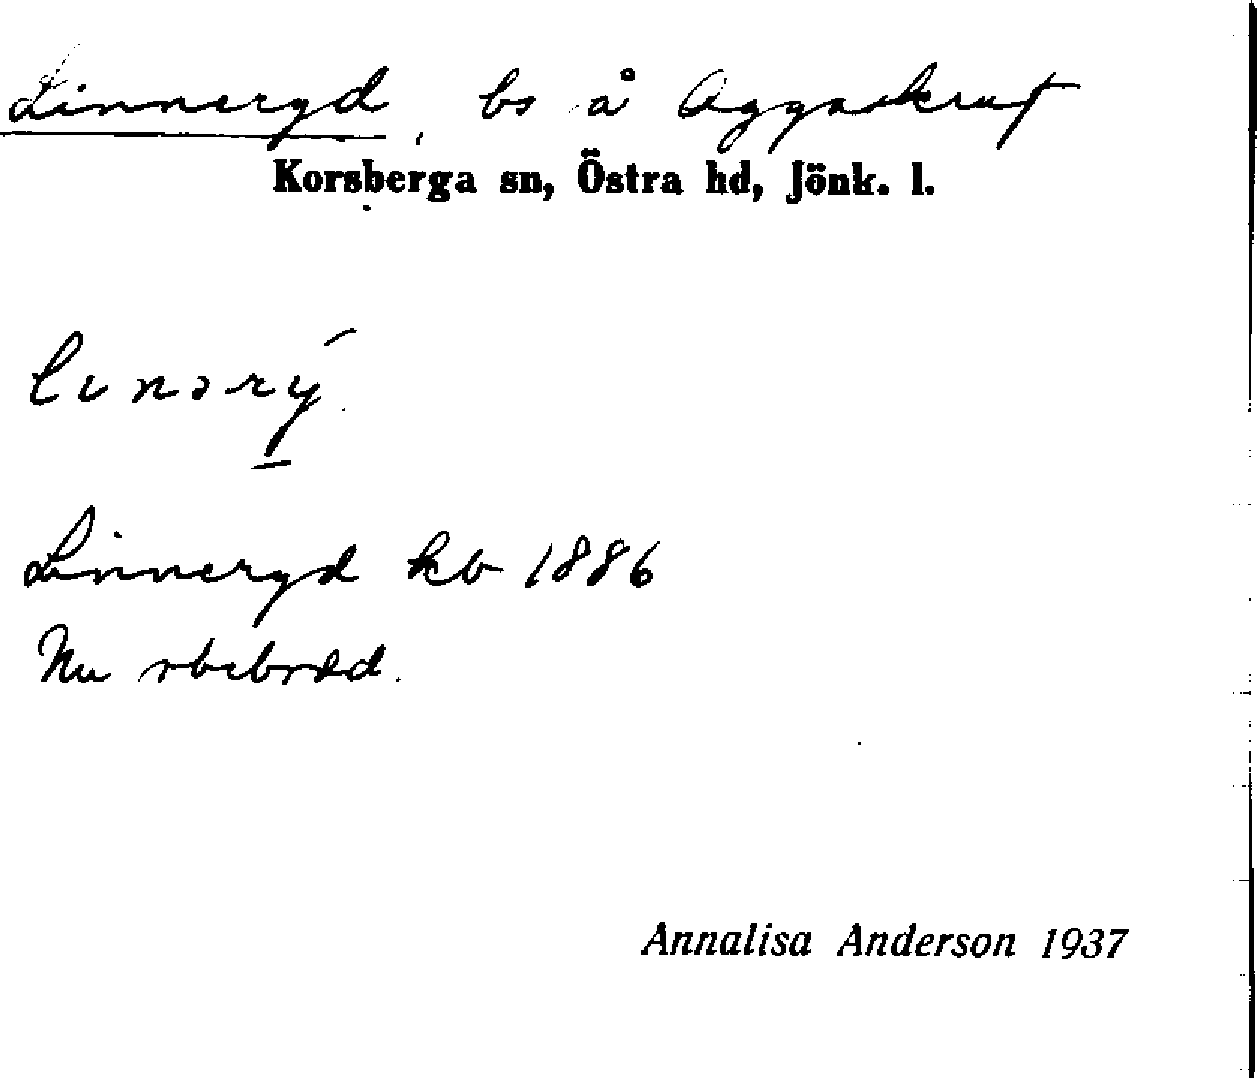 Linneryd, bs å Aggaskruf
Korsberga sn, Östra hd, Jönk. l.
lınərý
Linneryd kb 1886
Nu obebodd.
Annalisa Anderson 1937